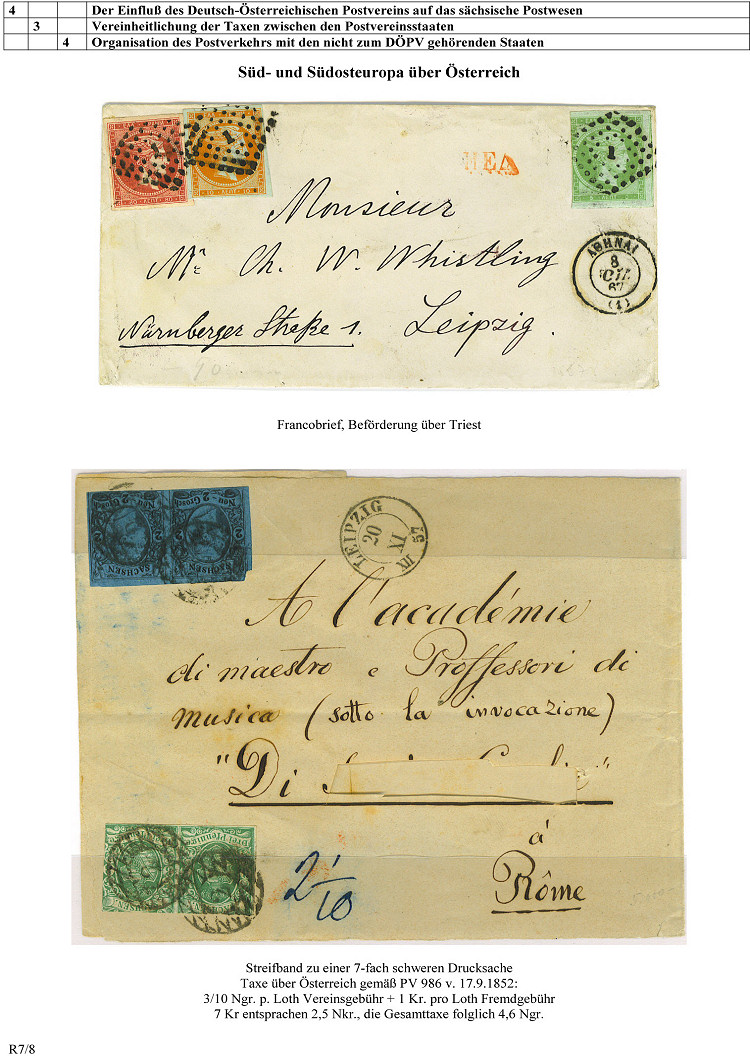 4 Der Einfluß des Deutsch-Österreichischen Postvereins auf das sächsische Postwesen
3 Vereinheitlichung der Taxen zwischen den Postvereinsstaaten
4 Organisation des Postverkehrs mit den nicht zum DÖPV gehörenden Staaten
Süd- und Südosteuropa über Österreich
1
1
ΑΘΗΝΑΙ
8
67
(1)
Monsieur
Mr Ch. W. Whistling
Nürnberger Straße 1. Leipzig.
Francobrief, Beförderung über Triest
Neu-2 Grosch
Neu-2 Grosch
SACHSEN
SACHSEN
LEIPZIG
20
XI
57
A l'académie
di maestro e Proffessori di
musica (sotto la invocazione)
"Di
à
Rôme
Drei Pfennige
2 1/10
Streifband zu einer 7-fach schweren Drucksache
Taxe über Österreich gemäß PV 986 v. 17.9.1852:
3/10 Ngr. p. Loth Vereinsgebühr + 1 Kr. pro Loth Fremdgebühr
7 Kr entsprachen 2,5 Nkr., die Gesamttaxe folglich 4,6 Ngr.
R7/8